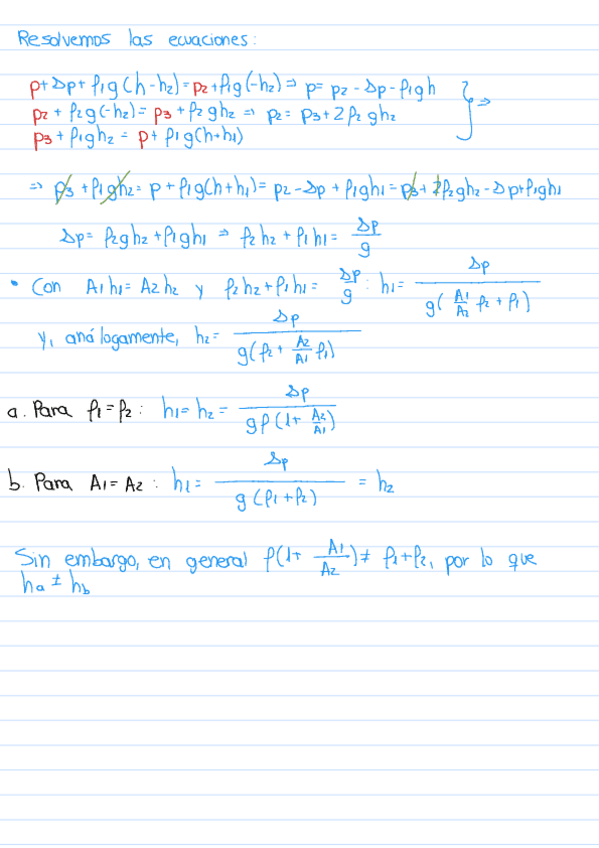 Resolvemos las ecuaciones:
p+Δp+ρ₁g(h-h₂)=p₂+ρ₁g(-h₂)⇒ p= p₂-Δp-ρ₁gh
p₂+ρ₂g(-h₂)= p₃+ρ₂gh₂ ⇒ p₂= p₃+2ρ₂gh₂ } ⇒
p₃+ρ₁gh₂ = p+ρ₁g(h+h₁)
⇒ p₃+ρ₁gh₂= p+ρ₁g(h+h₁)= p₂-Δp+ρ₁gh₁= p₃+2ρ₂gh₂-Δp+ρ₁gh₁
Δp= ρ₂gh₂+ρ₁gh₁ ⇒ ρ₂h₂+ρ₁h₁= Δp/g
• Con A₁h₁=A₂h₂ y ρ₂h₂+ρ₁h₁= Δp/g : h₁= Δp/(g(A₁/A₂ ρ₂+ρ₁))
y, análogamente, h₂= Δp/(g(ρ₂+ A₂/A₁ ρ₁))
a. Para ρ₁=ρ₂: h₁=h₂= Δp/(gρ(1+ A₂/A₁))
b. Para A₁=A₂: h₁= Δp/(g(ρ₁+ρ₂)) = h₂
Sin embargo, en general ρ(1+ A₁/A₂)≠ ρ₁+ρ₂, por lo que
ha ≠ hb